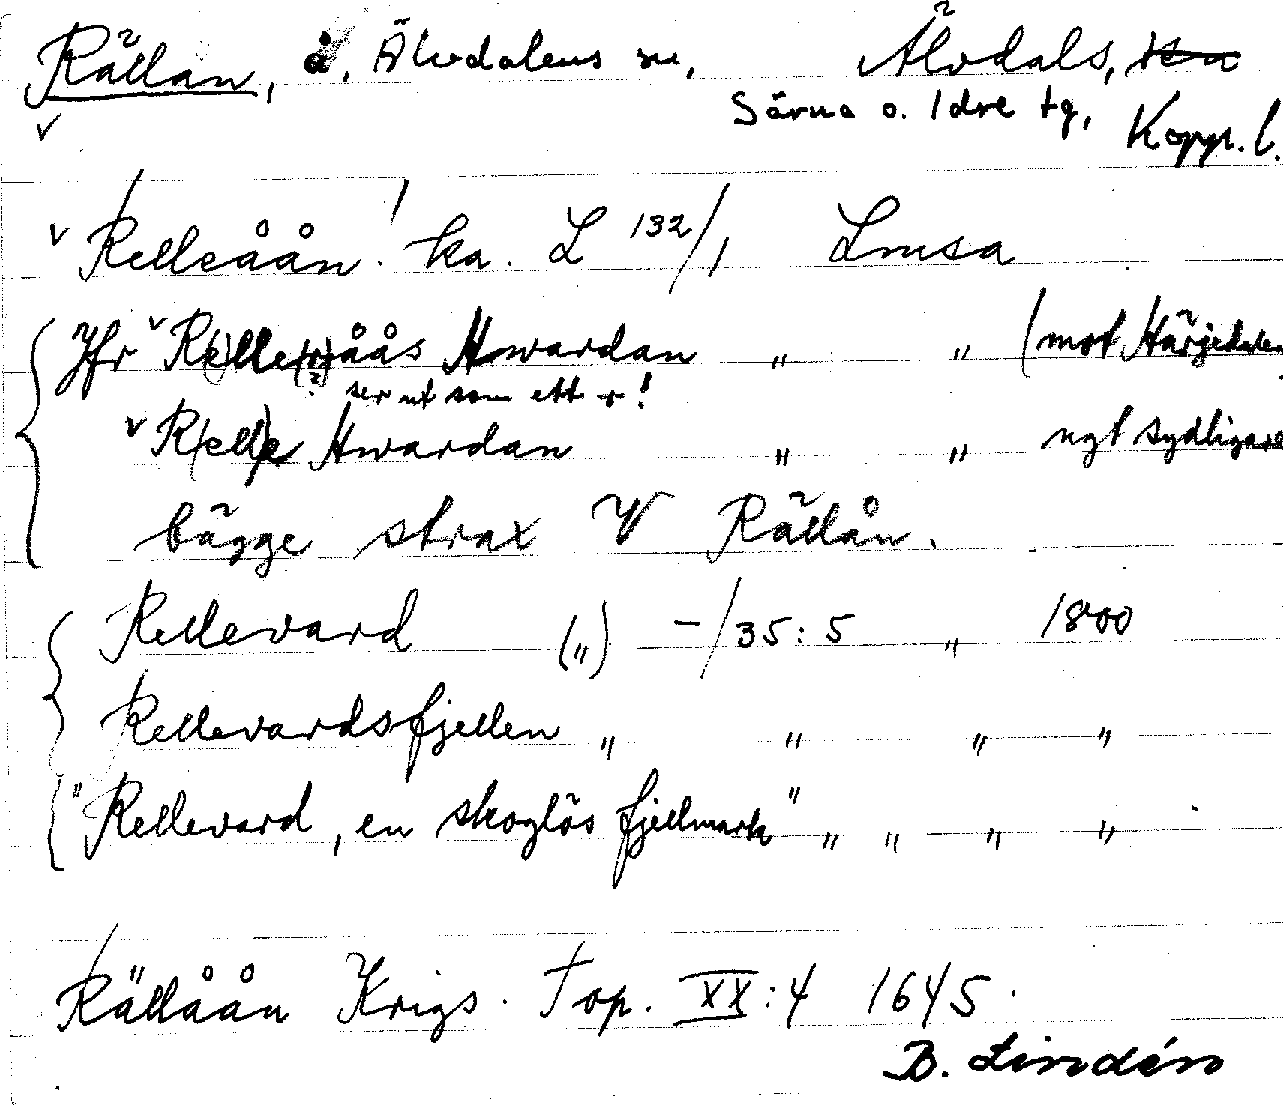 Rällån, å, Älvdalens sn, Älvdals,
Särna o. Idre tg, Kopp. l.
Relleåån! ka. L 132/1 Lmsa
Jfr Relle(r)åås Hwardan " " (mot Härjedalen
(?) ser ut som ett r!
Relle Hwardan " " ngt sydligare
bägge strax V Rällån.
Rellevard (") -/35:5 " 1800
Rellevardsfjellen " " " "
"Rellevard, en skoglös fjellmark" " " " "
Rällåån Krigs. Top. XX:4 1645.
B. Lindén